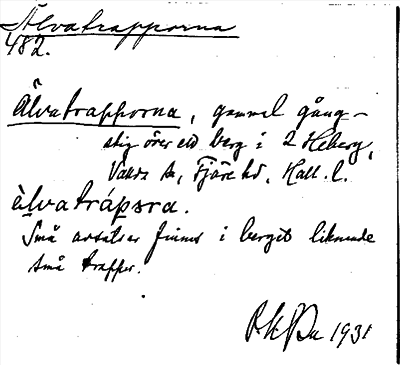 Älvatrapporna
482.
Älvatrapporna, gammal gång-
stig över ett berg i 2 Heberg,
Valda sn, Fjäre hd, Hall. l.
älvatrápsra.
Små avsatser finnes i berget liknande
små trapper.
1931